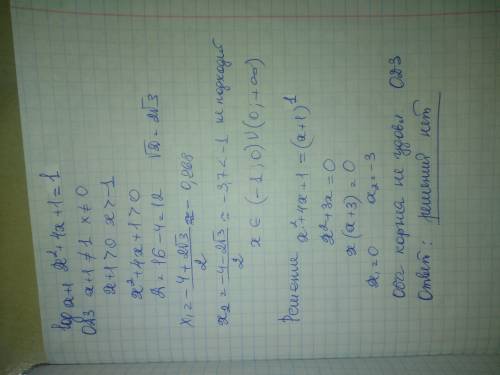 log x+1 x²+4x+1=1
ОДЗ x+1≠1 x≠0
x+1>0 x>-1
x²+4x+1>0
D=16-4=12 √D=2√3
x₁=(-4+2√3)/2≈-0,268
x₂=(-4-2√3)/2≈-3,7<-1 не подходит
x∈(-1;0)∪(0;+∞)
Решение x²+4x+1=(x+1)¹
x²+3x=0
x(x+3)=0
x₁=0 x₂=-3
Оба корня не удовл ОДЗ
Ответ: решений нет